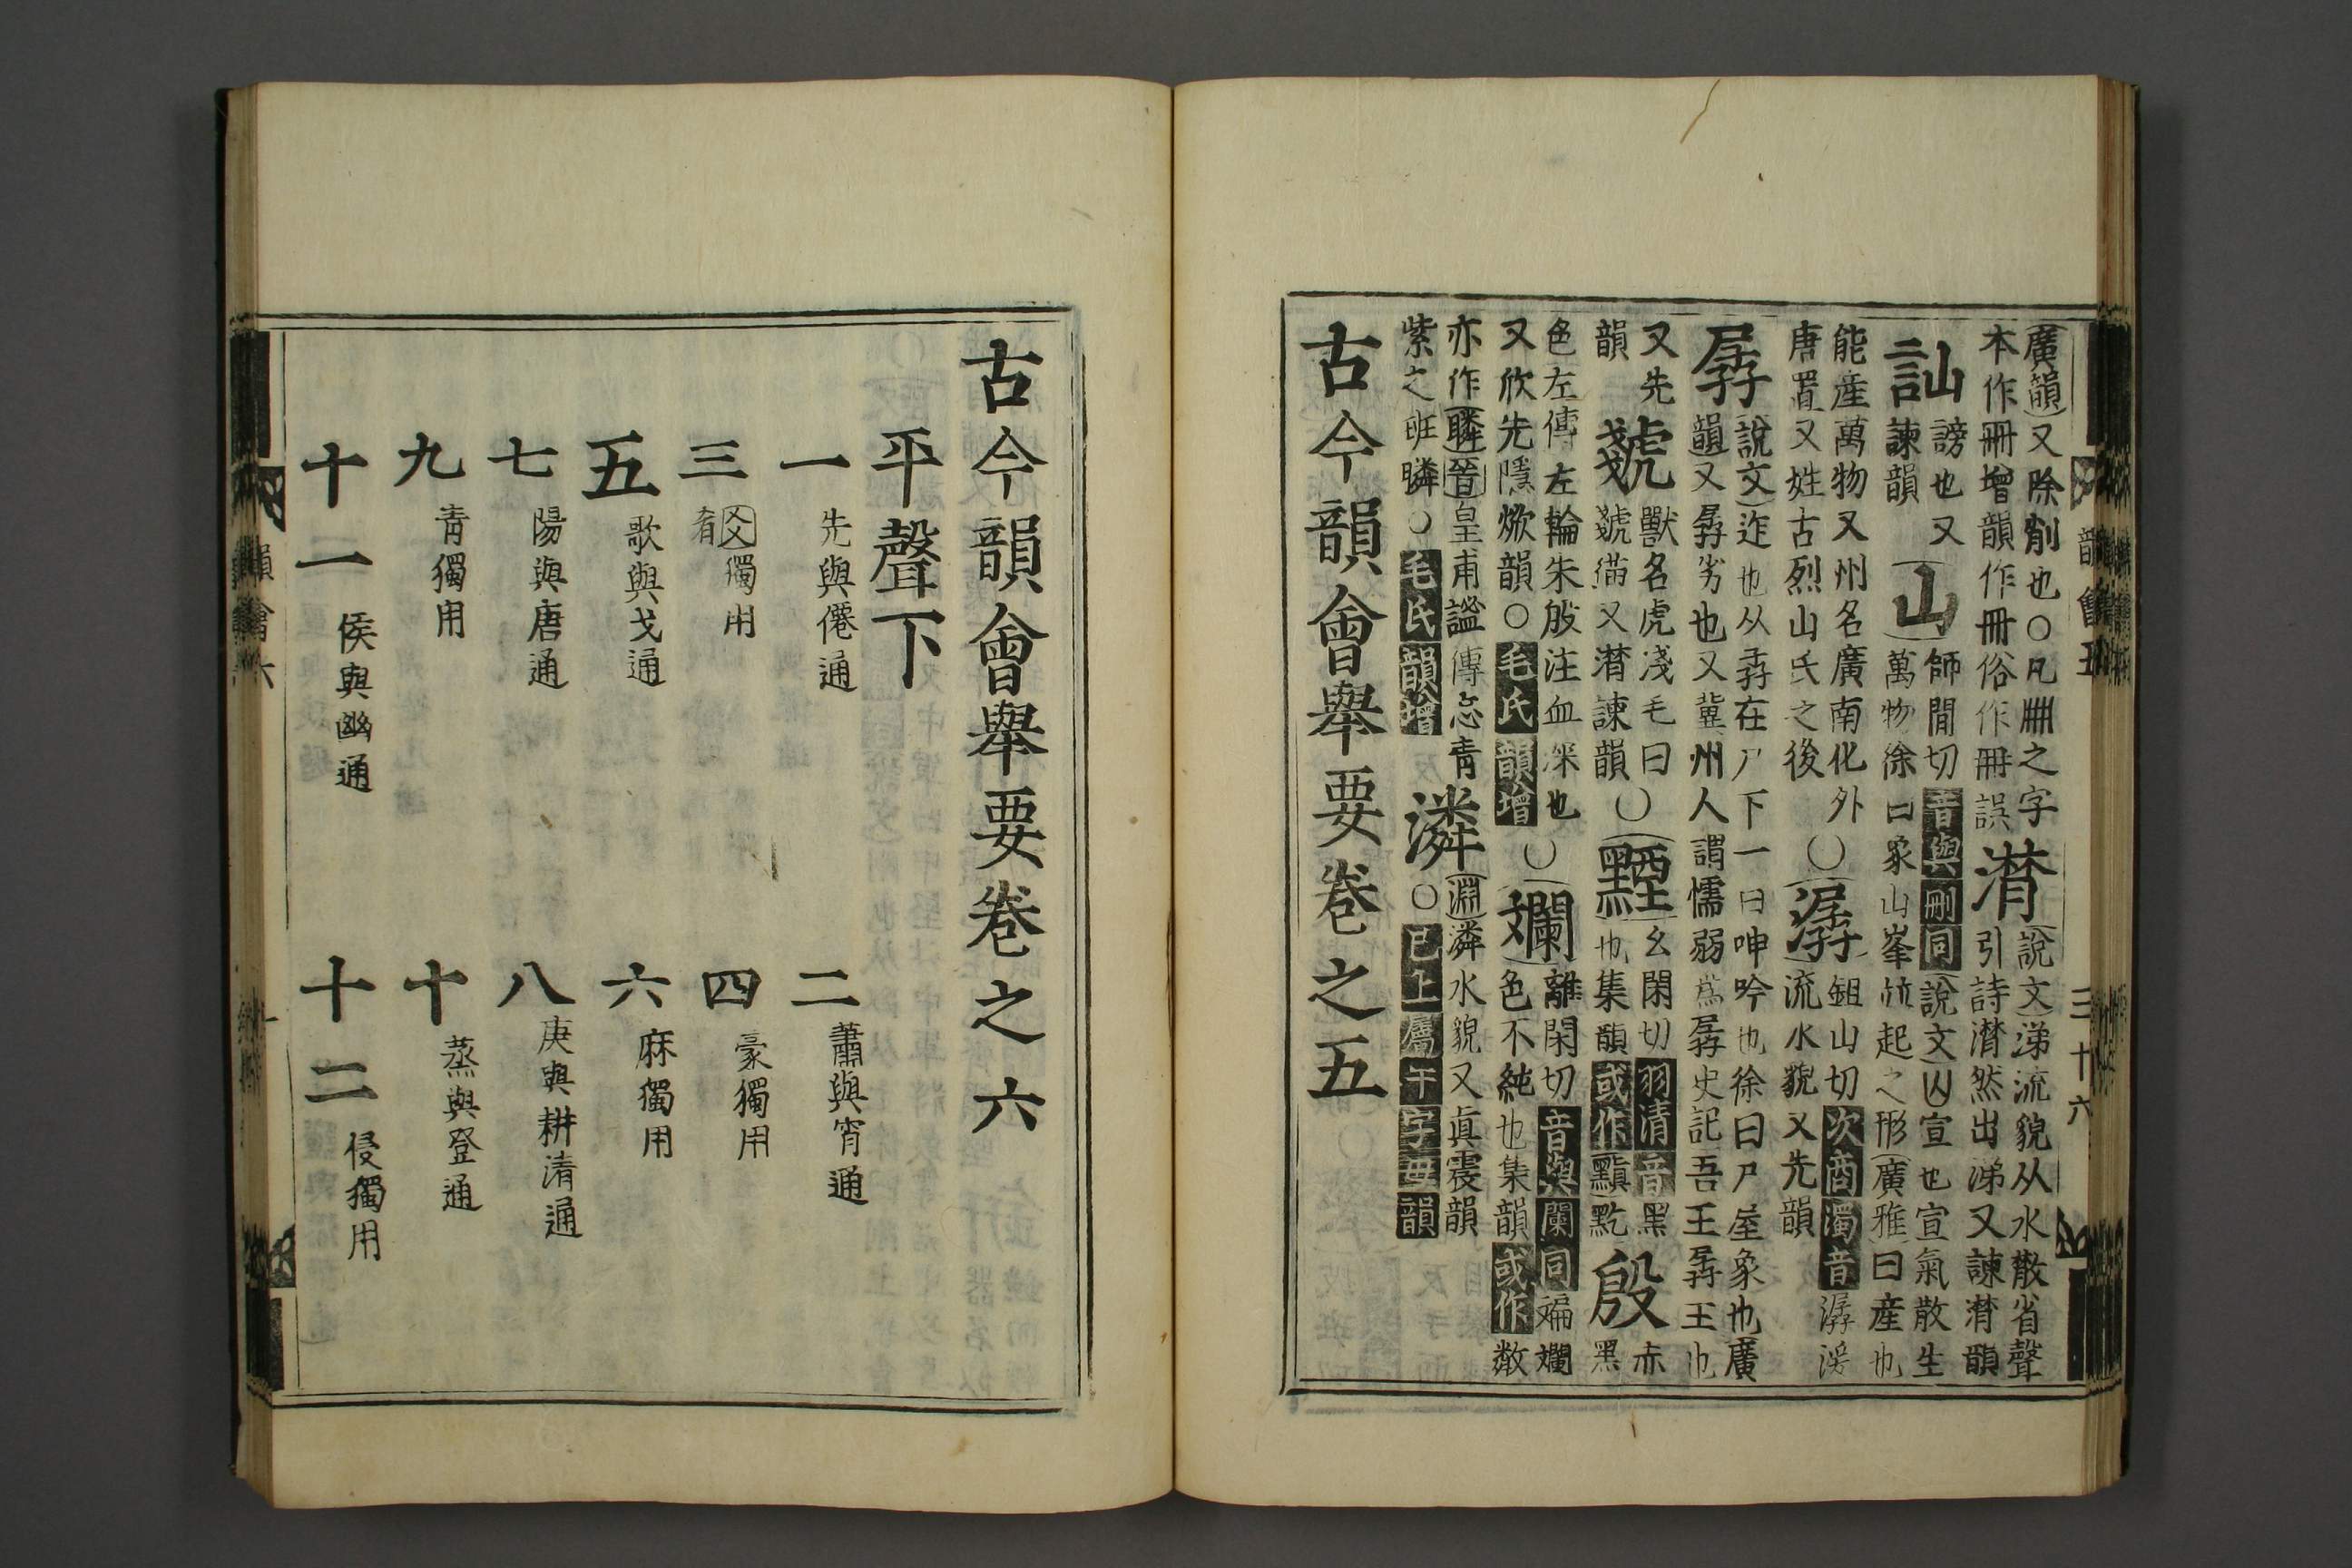 廣韻又除削也○凡刪之字
本作冊增韻作冊俗作冊誤
潸
說文涕流貌从水散省聲
引詩潸然出涕又諫潸韻
訕
謗也又
諫韻
山
師閒切音與刪同說文山宣也宣氣散生
萬物徐曰象山峯並起之形廣雅曰山產也
能產萬物又州名廣南化外
唐置又姓古烈山氏之後
○
潺
鉏山切次商濁音潺湲
流水貌又先韻
孱
說文迮也从孨在尸下一曰呻吟也徐曰尸屋象也廣
韻又孱劣也又冀州人謂懦弱爲孱史記吾王孱王也
又先
韻
虥
獸名虎淺毛曰
虥猫又潸諫韻
○
黫
幺閑切羽清音黑
也集韻或作黰黗
殷
赤黑
色左傳左輪朱殷注血深也
又欣先隱焮韻○毛氏韻增
○
斕
離閑切音與闌同斒斕
色不純也集韻或作斆
亦作璘晉皇甫謐傳忘青
紫之班璘○毛氏韻增
潾
淵潾水貌又眞震韻
○已上屬干字母韻
古今韻會舉要卷之五
韻會五
三十六
古今韻會舉要卷之六
平聲下
一 先與僊通
二 蕭與宵通
三 爻肴獨用
四 豪獨用
五 歌與戈通
六 麻獨用
七 陽與唐通
八 庚與耕清通
九 青獨用
十 蒸與登通
十一 侯與幽通
十二 侵獨用
韻會六
一